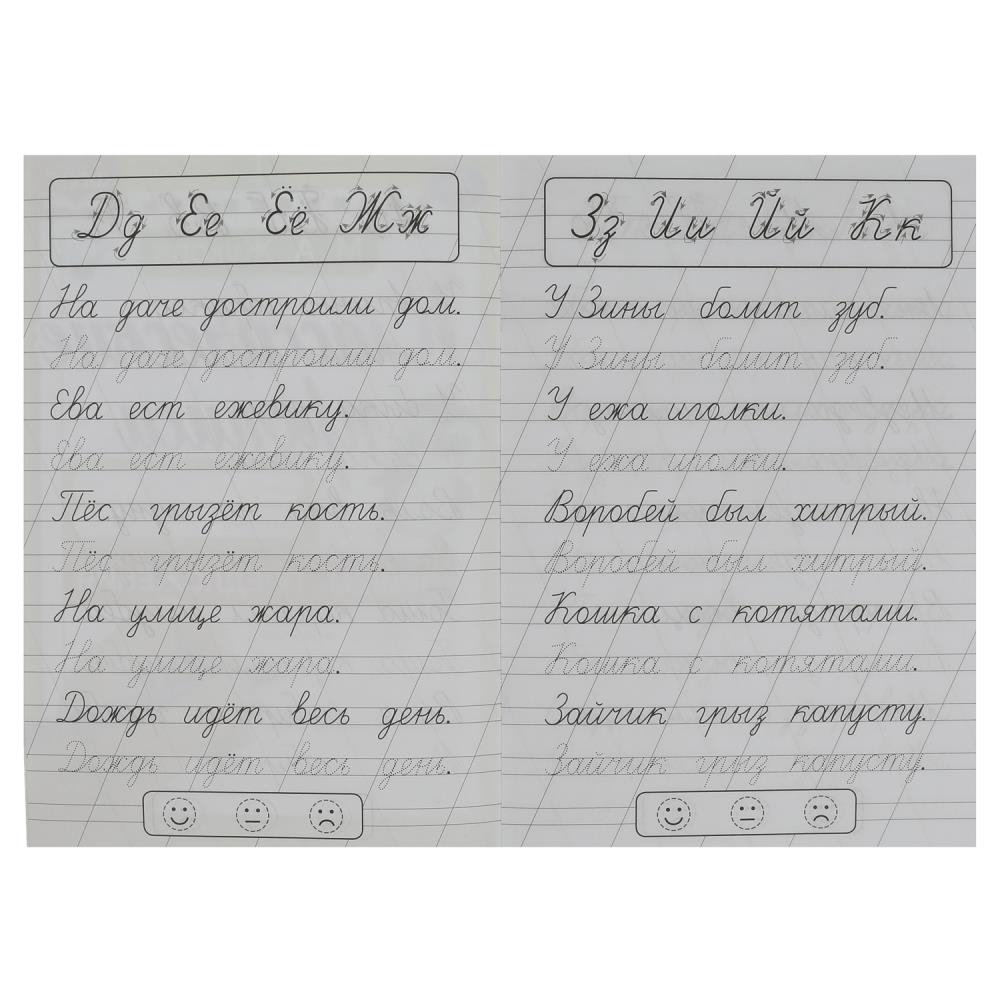 Дд Ее Ёё Жж
На даче достроили дом.
На даче достроили дом.
Ева ест ежевику.
Ева ест ежевику.
Пёс грызёт кость.
Пёс грызёт кость.
На улице жара.
На улице жара.
Дождь идёт весь день.
Дождь идёт весь день.
Зз Ии Йй Кк
У Зины болит зуб.
У Зины болит зуб.
У ежа иголки.
У ежа иголки.
Воробей был хитрый.
Воробей был хитрый.
Кошка с котятами.
Кошка с котятами.
Зайчик грыз капусту.
Зайчик грыз капусту.